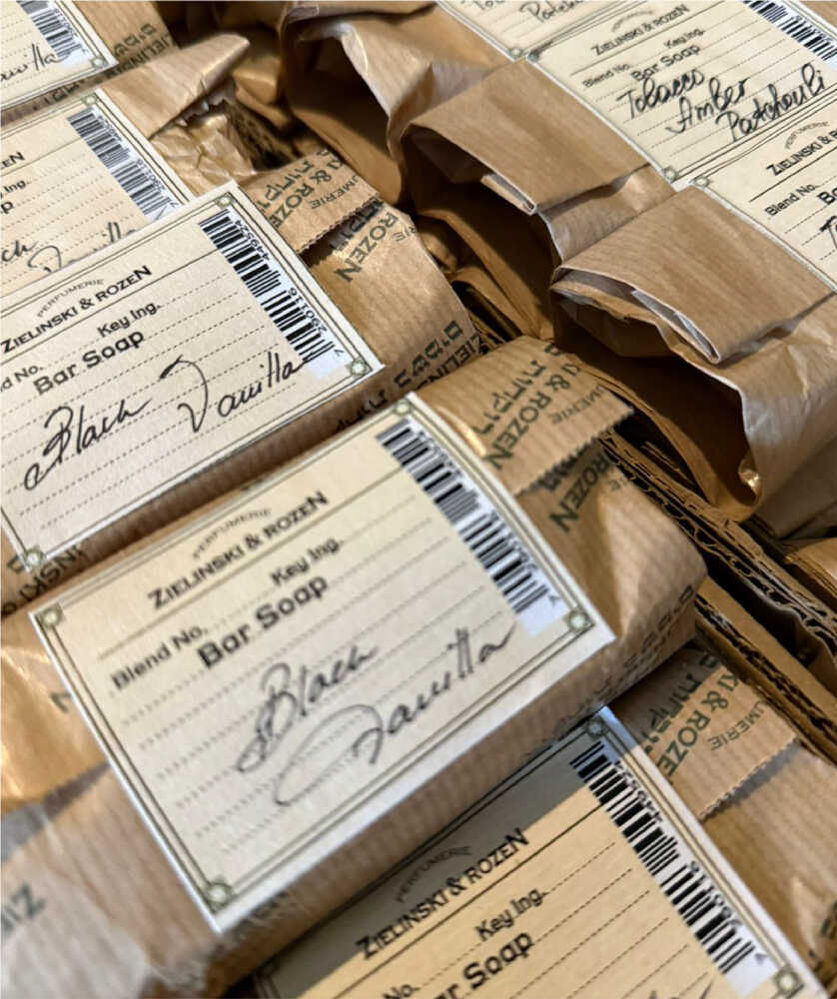 Patchou
PERFUMERIE
ZIELINSKI & ROZEN
Blend No. Key Ing.
Bar Soap
Tobacco
Amber
Patchouli
PERFUMERIE
ZIELINSKI &
Blend No.
Vanilla
PERFUMERIE
ZIELINSKI & ROZEN
Key Ing.
Bar Soap
Black Vanilla
& ROZEN
ROZEN
PERFUMERIE
ZIELINSKI & ROZEN
Blend No. Key Ing.
Bar Soap
Black
Vanilla
& ROZEN
ROZEN
PERFUMERIE
ZIELINSKI & ROZEN
No. Key Ing.
Bar Soap